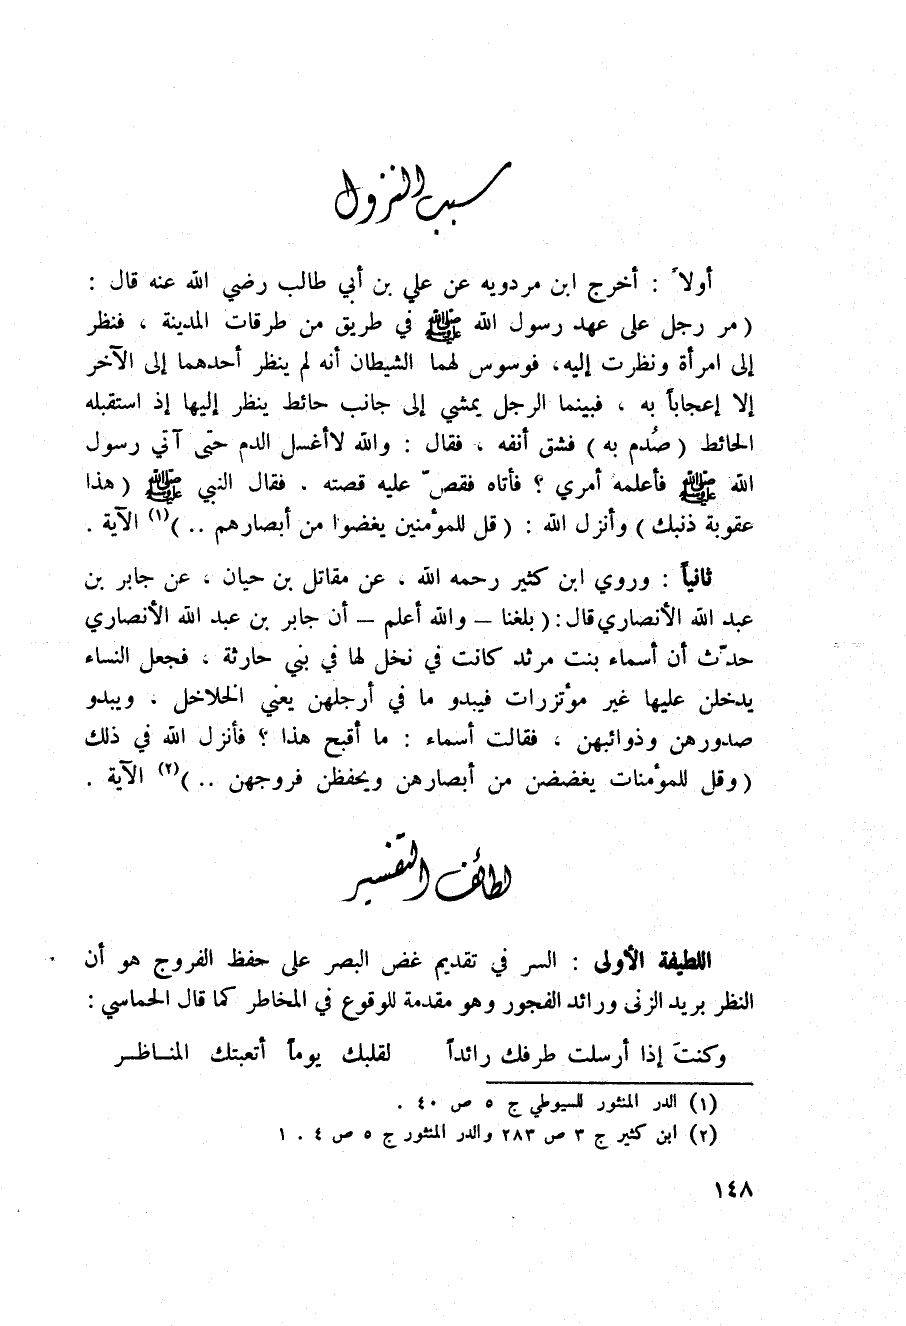 سبب النزول
أولاً : أخرج ابن مردويه عن علي بن أبي طالب رضي الله عنه قال :
( مر رجل على عهد رسول الله ﷺ في طريق من طرقات المدينة ، فنظر
إلى امرأة ونظرت إليه، فوسوس لهما الشيطان أنه لم ينظر أحدهما إلى الآخر
إلا إعجاباً به ، فبينما الرجل يمشي إلى جانب حائط ينظر إليها إذ استقبله
الحائط ( صُدم به ) فشق أنفه ، فقال : والله لا أغسل الدم حتى آتي رسول
الله ﷺ فأعلمه أمري ؟ فأتاه فقصّ عليه قصته . فقال النبي ﷺ ( هذا
عقوبة ذنبك ) وأنزل الله : ( قل للمؤمنين يغضوا من أبصارهم .. )(١) الآية .
ثانياً : وروي ابن كثير رحمه الله ، عن مقاتل بن حيان ، عن جابر بن
عبد الله الأنصاري قال : ( بلغنا – والله أعلم – أن جابر بن عبد الله الأنصاري
حدّث أن أسماء بنت مرثد كانت في نخل لها في بني حارثة ، فجعل النساء
يدخلن عليها غير مؤتزرات فيبدو ما في أرجلهن يعني الخلاخل ، ويبدو
صدورهن وذوائبهن ، فقالت أسماء : ما أقبح هذا ؟ فأنزل الله في ذلك
( وقل للمؤمنات يغضضن من أبصارهن ويحفظن فروجهن .. )(٢) الآية .
لطائف التفسير
اللطيفة الأولى : السر في تقديم غض البصر على حفظ الفروج هو أن
النظر بريد الزنى ورائد الفجور وهو مقدمة للوقوع في المخاطر كما قال الحماسي :
وكنتَ إذا أرسلت طرفك رائداً لقلبك يوماً أتعبتك المناظر
(١) الدر المنثور للسيوطي ج ٥ ص ٤٠ .
(٢) ابن كثير ج ٣ ص ٢٨٣ والدر المنثور ج ٥ ص ٤٠ . ١
١٤٨